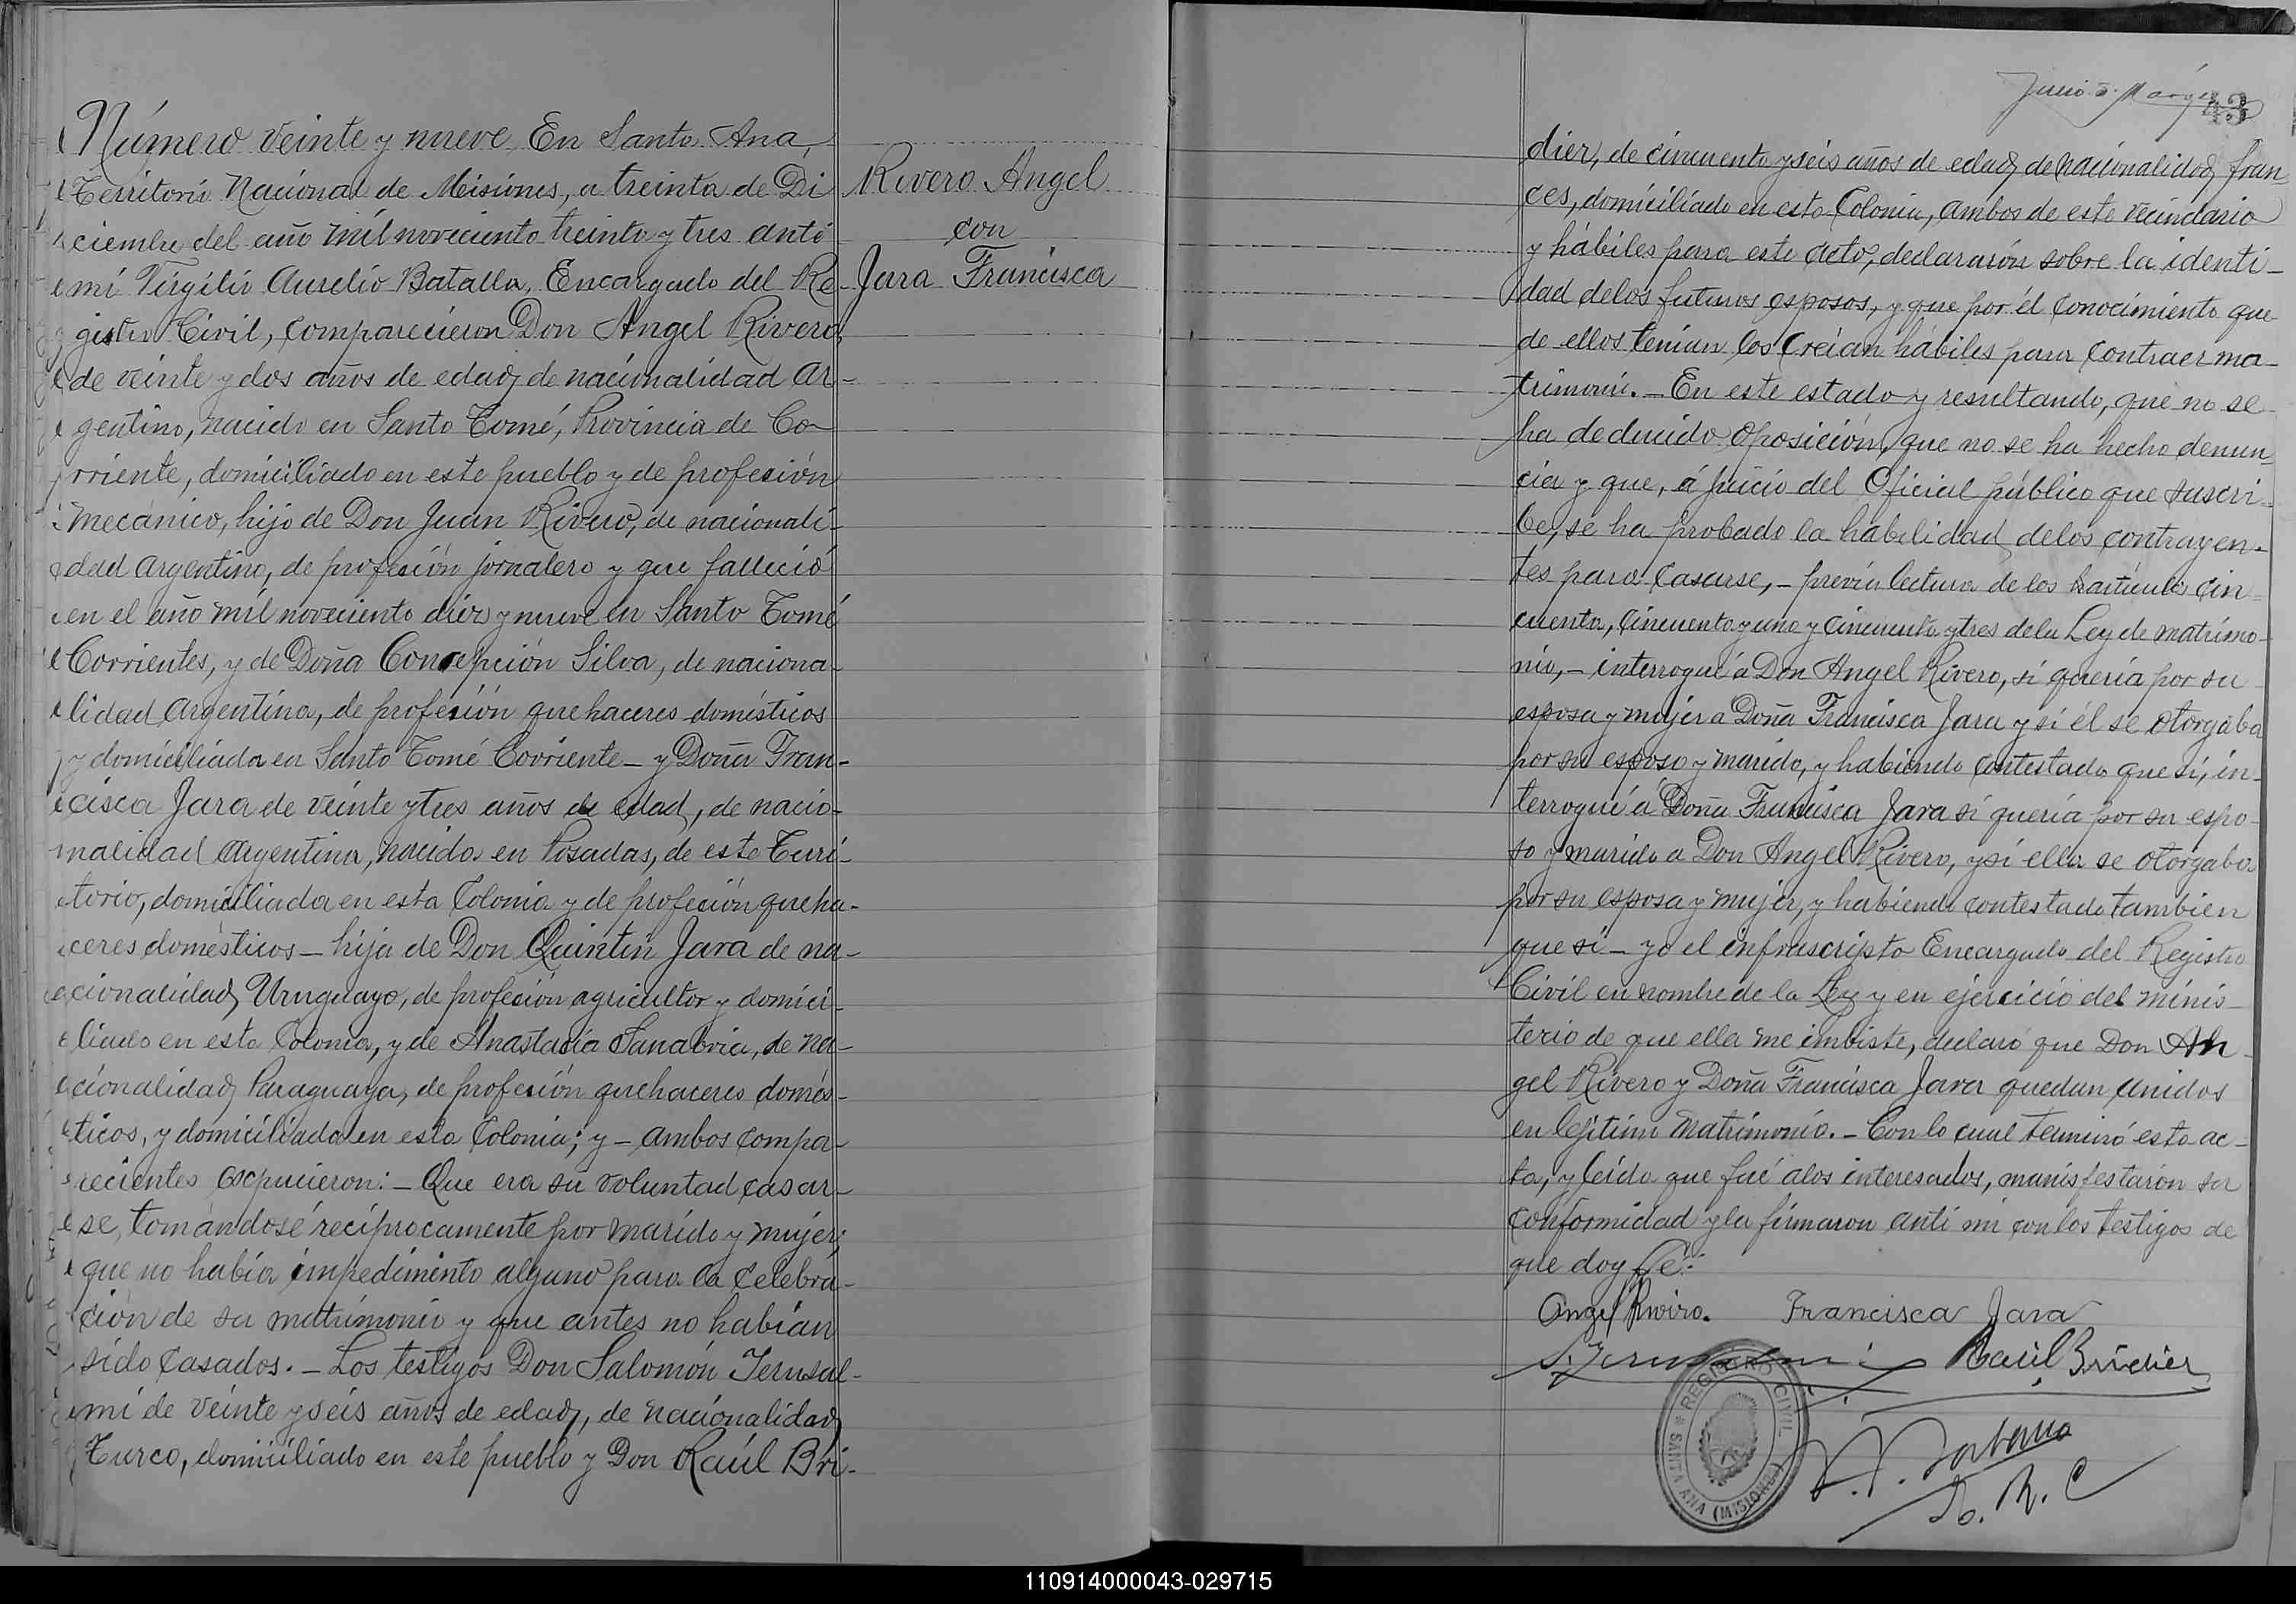 Número veinte y nueve. En Santa Ana,
Territorio Nacional de Misiones, a treinta de Di
ciembre del año mil noveciento treinta y tres anté
mí Virgilio Aurelio Batalla, Encargado del Re-
gistro Civil, comparecieron Don Angel Rivero,
de veinte y dos años de edad, de nacionalidad Ar-
gentino, nacido en Santo Tomé, Provincia de Co-
rriente, domiciliado en este pueblo y de profeción
mecánico, hijo de Don Juan Rivero, de nacionali-
dad Argentino, de profeción jornalero y que falleció
en el año mil noveciento diez y nueve en Santo Tomé
Corrientes, y de Doña Concepción Silva, de naciona-
lidad Argentina, de profeción quehaceres domésticos
y domiciliada en Santo Tomé Corriente - y Doña Fran-
cisca Jara de veinte y tres años de edad, de nacio-
nalidad Argentina, nacida en Posadas, de este Terri-
torio, domiciliada en esta Colonia y de profeción queha-
ceres domésticos - hija de Don Quintín Jara de na-
cionalidad Uruguayo, de profeción agricultor y domici-
liado en esta Colonia, y de Anastacia Sanabria, de na-
cionalidad Paraguaya, de profeción quehaceres domés-
ticos, y domiciliada en esta Colonia; y - ambos compa-
recientes expucieron: - Que era su voluntad casar-
se, tomándosé recíprocamente por marido y mujer;
que no había impedimento alguno para la celebra-
ción de su matrimonio y que antes no habían
sido casados. - Los testigos Don Salomón Jerusal-
mi de veinte y seis años de edad, de nacionalidad
Turco, domiciliado en este pueblo y Don Raúl Bri-
Rivero Angel
con
Jara Francisca
43
dier, de cincuenta y seis años de edad, de nacionalidad fran-
ces, domiciliado en esta Colonia, ambos de este vecindario
y hábiles para este acto, declararón sobre la identi-
dad delos futuros esposos, y que por él conocimiento que
de ellos tenían los creían hábiles para contraer ma-
trimonio. - En este estado y resultando, que no se
ha deducido oposición, que no se ha hecho denun-
cia y que, á juicio del Oficial público que suscri-
be, se ha probado la habilidad delos contrayen-
tes para casarse, - previa lectura de los artículos cin-
cuenta, cincuenta y uno y cincuenta y tres dela Ley de matrimo-
nio, - interrogué a Don Angel Rivero, si quería por su
esposa y mujer a Doña Francisca Jara y si él se otorgaba
por su esposo y marido, y habiendo contestado que sí, in-
terrogué a Doña Francisca Jara si quería por su espo-
so y marido a Don Angel Rivero, y si ella se otorgaba
por su esposa y mujer, y habiendo contestado tambien
que sí - yo el infrascripto Encargado del Registro
Civil en nombre de la Ley y en ejercicio del minis-
terio de que ella me imbiste, declaró que Don An-
gel Rivero y Doña Francisca Jara quedan unidos
en legitimo matrimonio. - Con lo cual terminó esta ac-
ta, y leída que fué alos interesados, manisfestarón su
conformidad y la firmaron anti mi con los testigos de
que doy fé:-
Angel Riviro. Francisca Jara
S. Jerusalmi Raúl Bridier
REGISTRO CIVIL
SANTA ANA (MISIONES)
E. R. C
110914000043-029715